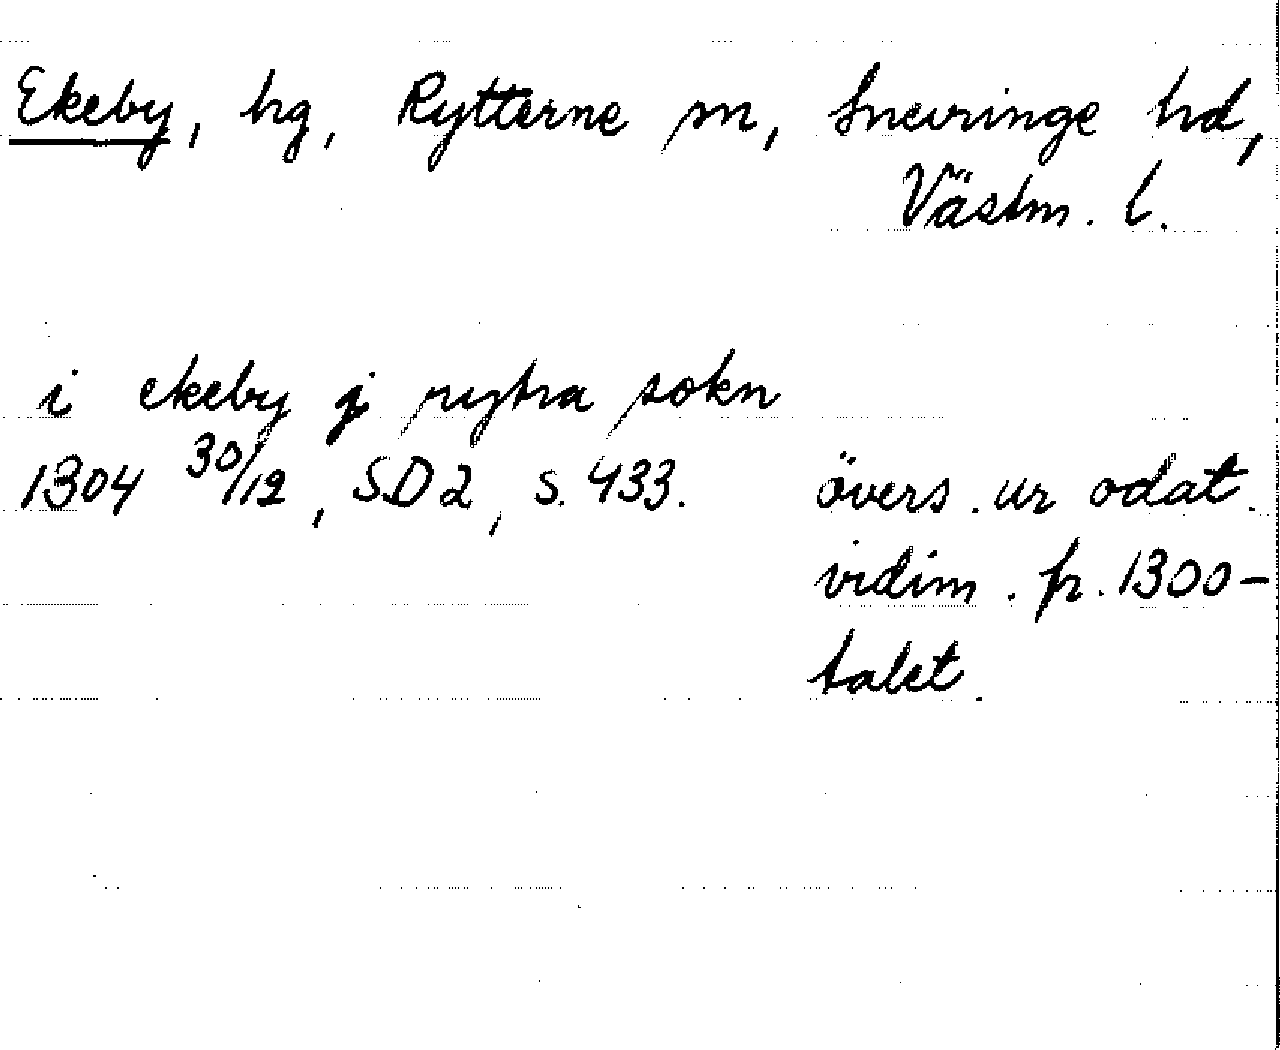 Ekeby, hg, Rytterne sn, Snevringe hd,
Västm. l.
i ekeby j rytra sokn
1304 30/12, SD 2, s. 433. övers. ur odat.
vidim. fr. 1300-
talet.